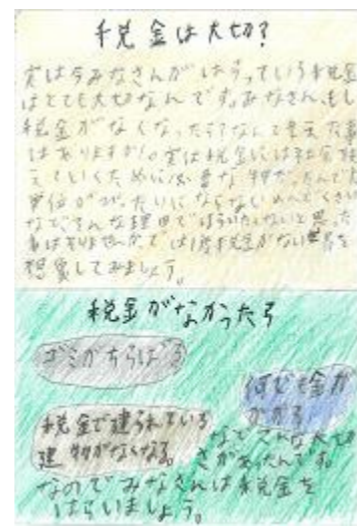 税金は大切?
実は今みなさんがはらっている税金
はとても大切なんです。みなさん、もし
税金がなくなったらなんて考えた事
はありますか。実は税金には社会を
えていくために必要な物だったんで
などそんな理由ではらいたくないと思った
事はありませんか?では1度税金がない世界を
想像してみましょう。
税金がなかったら
ゴミがちらばる
何でも金が
かかる
税金で建られている
建物がなくなる。
などこんな大切
さがあったんです。
なのでみなさんは税金を
はらいましょう。